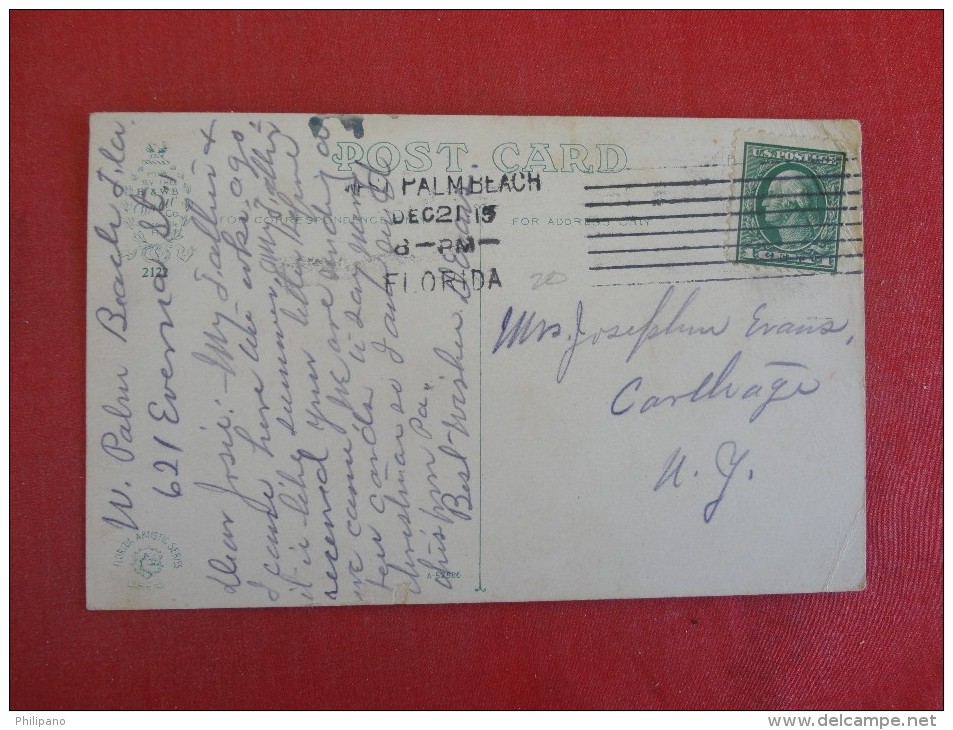 POST CARD
FOR CORRESPONDENCE
FOR ADDRESS ONLY
PALM BEACH
DEC 21 15
8 - PM -
FLORIDA
U.S. POSTAGE
CENT
20
Mrs. Josephine Evans,
Carthage
N. Y.
W. Palm Beach Fla.
621 Evernia St
Dear Josie:- My Father &
I came here two weeks ago,
it is like summer, My Mother
received your letter since
we came. We are sending a
few cards to say you
Christmas so I am
this from Pa.
Best Wishes
2122
FLORIDA ARTISTIC SERIES
Philipano
www.delcampe.net